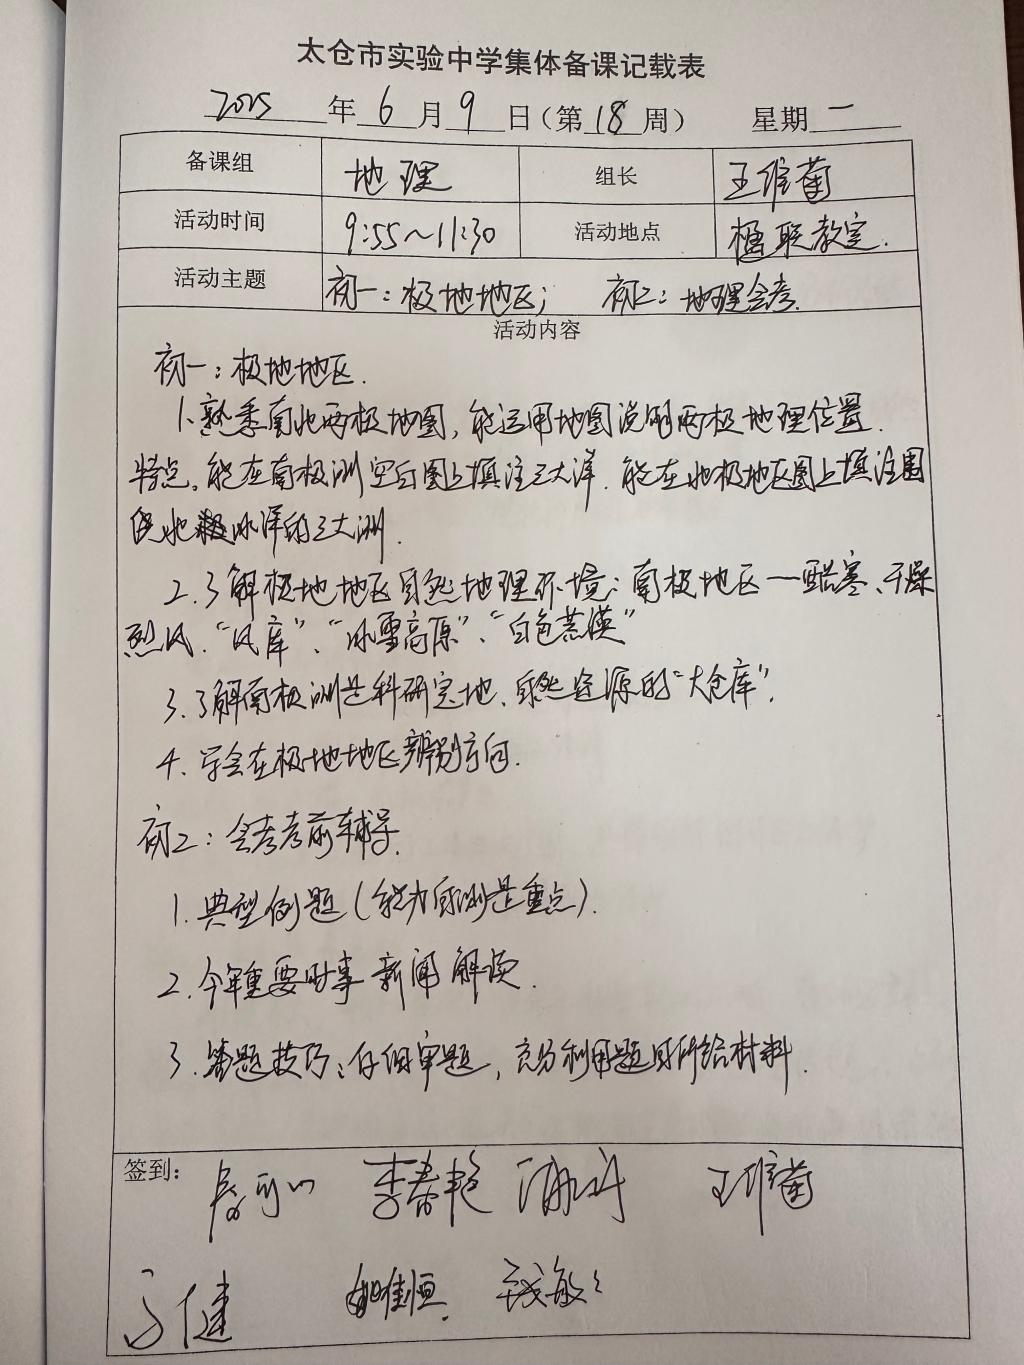 太仓市实验中学集体备课记载表
2025 年 6 月 9 日（第 18 周） 星期 一
备课组 地理 组长 王维菊
活动时间 9:55~11:30 活动地点 教室.
活动主题 初一：极地地区； 初二：地理会考.
活动内容
初一：极地地区.
1、熟悉南北两极地图，能运用地图说明两极地理位置.
特点。能在南极洲空白图上填注三大洋. 能在北极地区图上填注围
绕北极冰洋的三大洲.
2.了解极地地区自然地理环境：南极地区一酷寒、干燥
烈风.“风库”、“冰雪高原”、“白色荒漠”
3.了解南极洲是科研宝地、自然资源的“大仓库”.
4、学会在极地地区辨别方向.
初二：会考考前辅导.
1.典型例题（能力自测是重点）.
2.今年重要时事新闻解读.
3.答题技巧：仔细审题，充分利用题目所给材料.
签到：
李春艳 王维菊
健 佳恒 钱敏